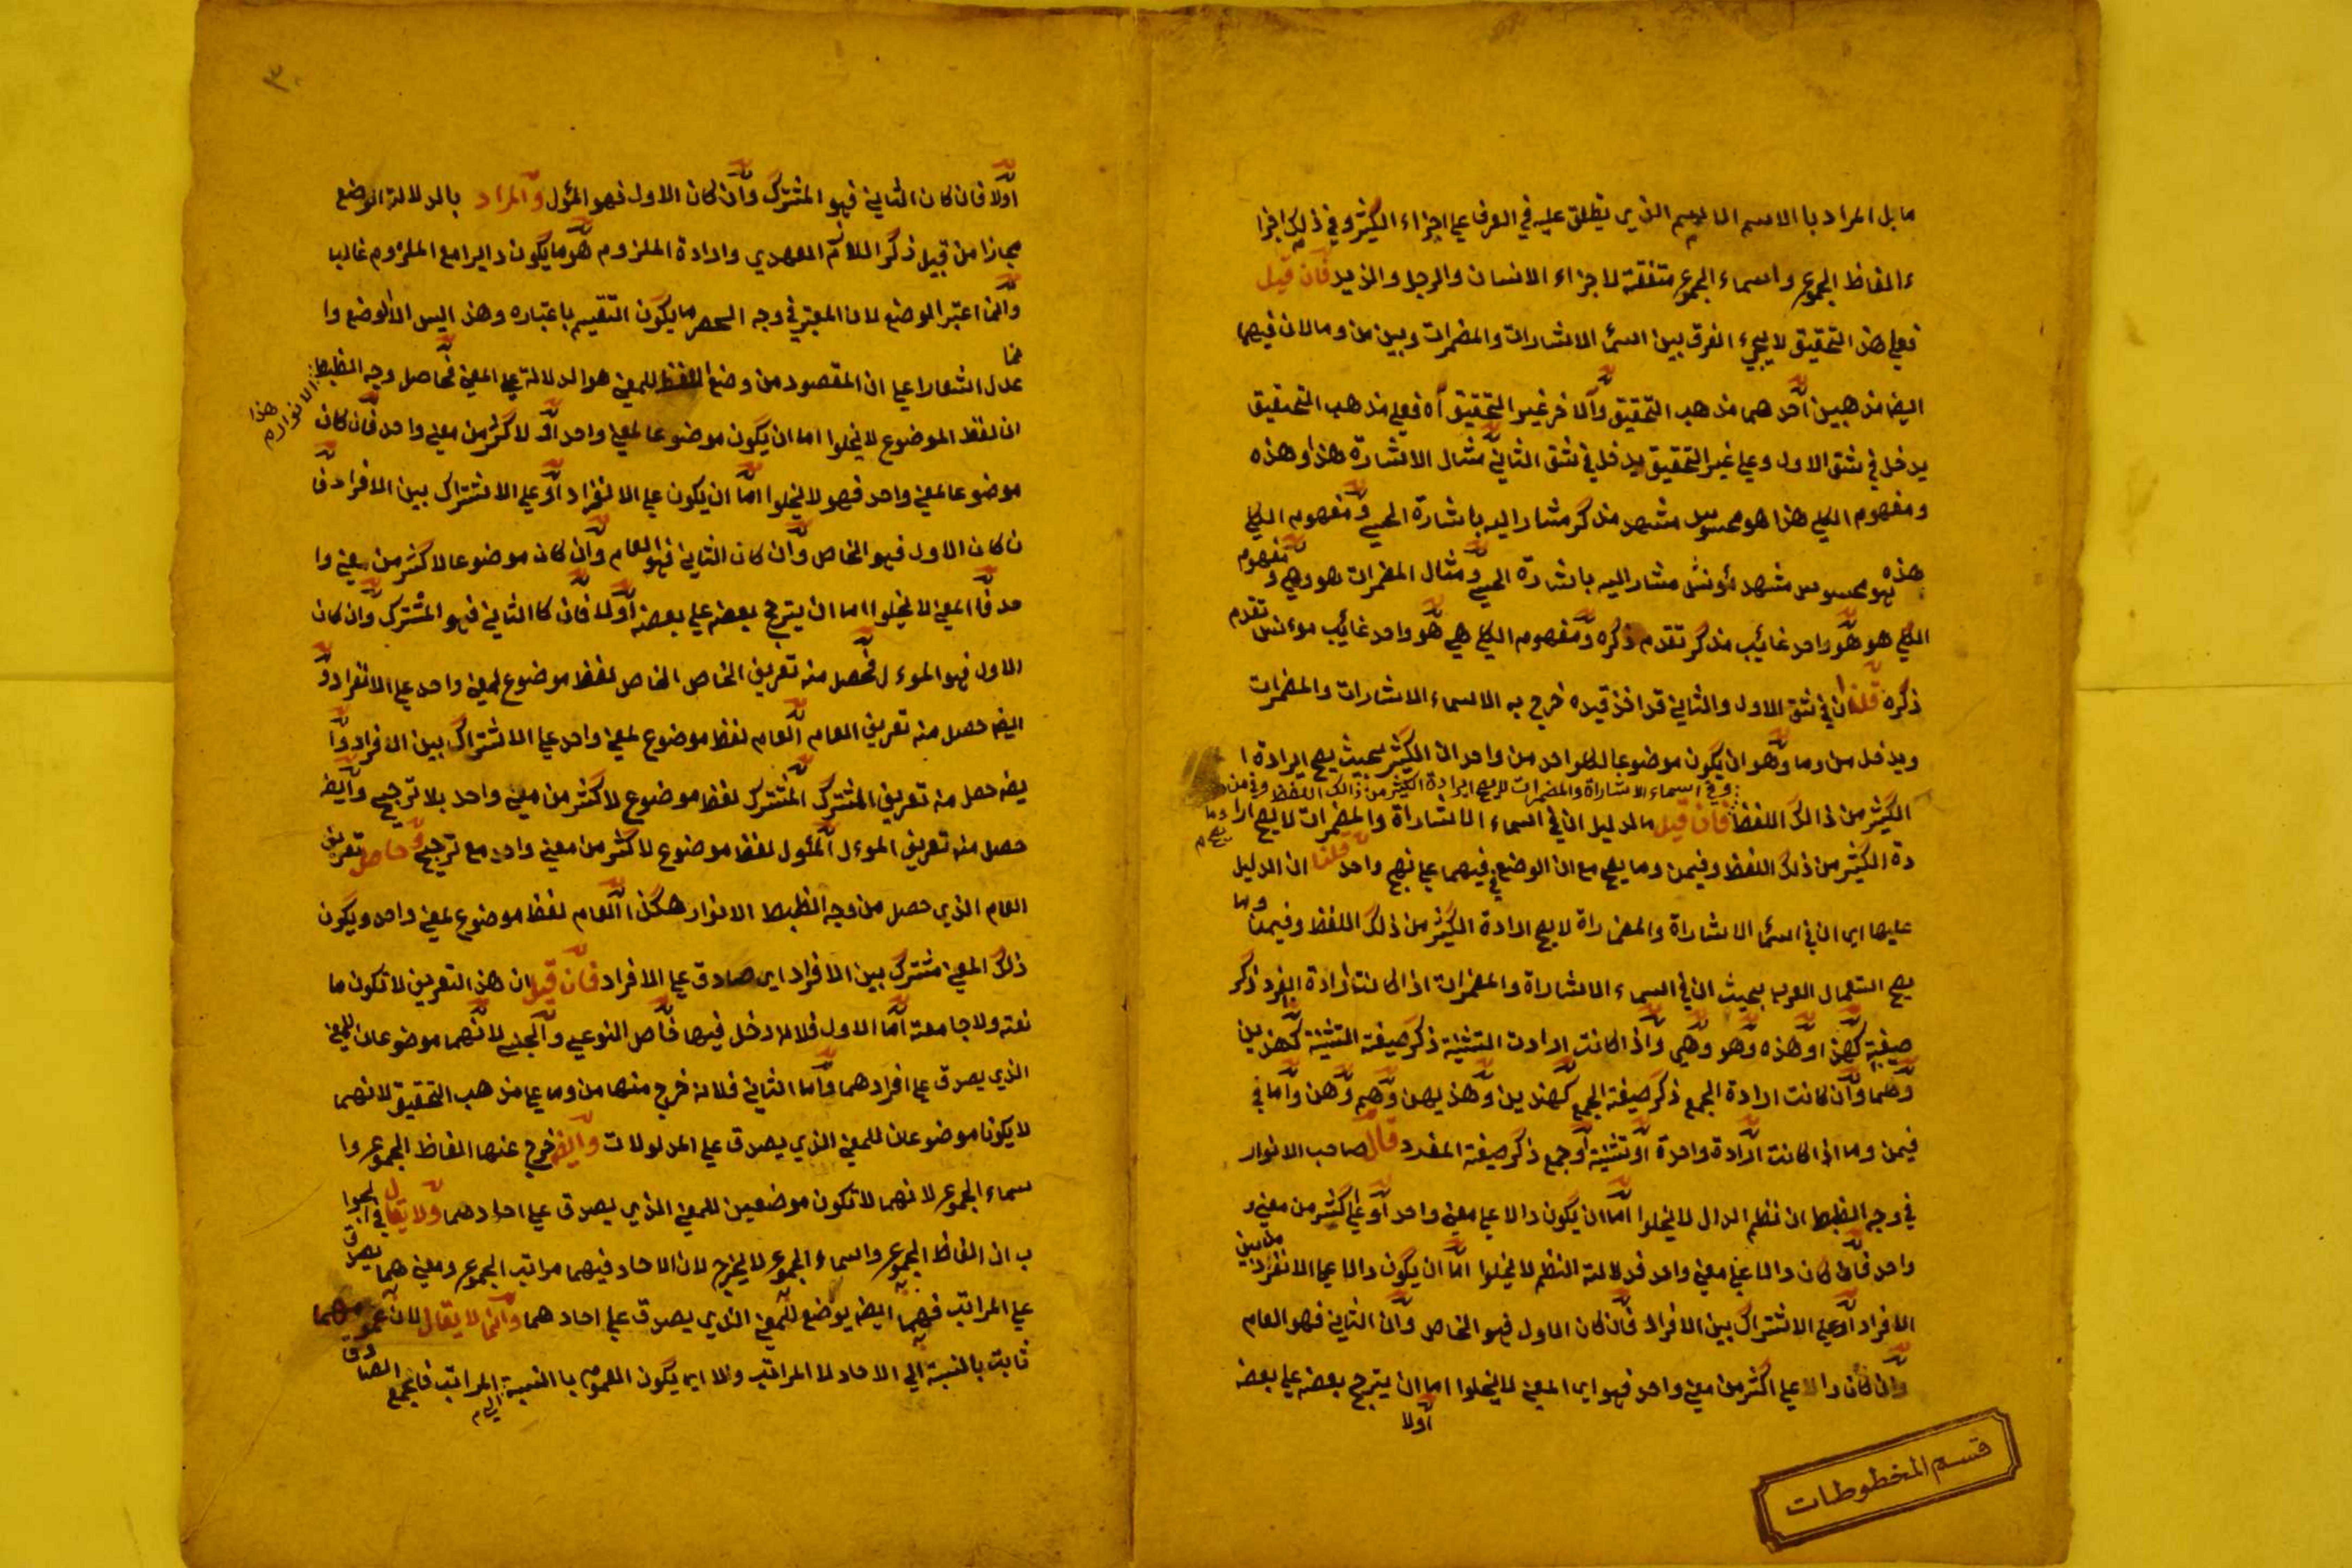 ما بل المراد با الاسم الذي يطلق عليه في العرف علي اجزاء الكيثر و في ذلك اجزا
ء الفاظ الجموع و اسماء الجموع متفقة لاجزاء الانسان والرجل والزيد فان قيل
فعلي هذ التحقيق لا يجيء الفرق بين اسما الاشارات والمضمرات وبين من وما لان فيهما
ايضا مذهبين احدهما مذهب التحقيق والاخر غير التحقيق اه فعلي مذهب التحقيق
يدخل في شق الاول وعلي غير التحقيق يدخل في شق الثاني مثال الاشارة هذا وهذه
ومفهوم الكلي هذا هو محسوس مشهد مذكر مشار اليه باشارة الحسي ومفهوم الكلي
هذه هو محسوس مشهد مؤنث مشار اليه باشارة الحسي ومثال المضمرات هو وهي ومفهوم
الكلي هو هو واحد غائب مذكر تقدم ذكره ومفهوم الكلي هي هو واحد غائب موءنث تقدم
ذكره قلنا ان في شق الاول والثاني قد اخذ قيده خرج به الاسماء الاشارات والمضمرات
ويدخل من وما وهو ان يكون موضوعا لكلواحد من واحد الي الكيثر بحيث يصح ايرادة ا
وفي اسماء الاشاراة والمضمرات لا يصح ايرادة الكيثر من ذالك اللفظ وفي من وما يصح
الكيثر من ذالك اللفظ فان قيل ما الدليل ان في اسماء الاشاراة والمضمرات لا يصح ارا
دة الكيثر من ذلك اللفظ وفيمن وما يصح مع ان الوضع فيهما علي نهج واحد قلنا ان الدليل
عليها اي ان في اسما الاشاراة والمضمراة لا يصح ارادة الكيثر من ذلك اللفظ وفيمن وما
يصح استعمال العرب بحيث ان في اسماء الاشاراة والمضمرات اذا كانت ارادة الفرد ذكر
صيغة كهذا وهذه وهو وهي واذا كانت ارادت التثنية ذكر صيغة التثنية كهذين
وهما وان كانت ارادة الجمع ذكر صيغة الجمع وهم وهن واما في
فيمن وما اذا كانت ارادة واحدة او تثنية او جمع ذكر صيغة المفرد قال صاحب الانوار
في وجه الضبط ان نظم الدال لا يخلوا اما ان يكون دالا علي معني واحد او علي اكثر من معني و
واحد فان كان دالا علي معني واحد فدلالة النظم لا يخلوا اما ان يكون دالا علي الانفراد من بين
الافراد او علي الاشتراك بين الافراد فان كان الاول فهو الخاص وان الثاني فهو العام
وان كان دالا علي اكثر من معني واحد فهو اي المعني لا يخلوا اما ان يترجح بعضه علي بعضه
اولا
قسم المخطوطات
٣
اولا فان كان الثاني فهو المشترك وان كان الاول فهو المؤل والمراد بالدلالة الوضع
مجازا من قبيل ذكر اللازم العهدي وارادة الملزوم هو ما يكون دايرا مع الملزوم غالبا
وانما اعتبر الوضع لان المعتبر في وجه الحصر ما يكون التقسيم باعتباره وهذ اليس الا لوضع وا
نما عدل اشعارا علي ان المقصود من وضع اللفظ للمعني هو الدلالة علي المعني فحاصل وجه الضبط
هذا الانوار م
ان لفظ الموضوع لا يخلوا اما ان يكون موضوعا لمعني واحد او لاكثر من معني واحد فان كان
موضوعا لمعني واحد فهو لا يخلوا اما ان يكون علي الانفراد او علي الاشتراك بين الافراد فا
ن كان الاول فهو الخاص وان كان الثاني فهو العام وان كان موضوعا لاكثر من معني وا
حد فا المعني لا يخلوا اما ان يترجح بعضه علي بعضه اولا فان كا الثاني فهو المشترك وان كان
الاول فهو الموءل فحصل منه تعريف الخاص الخاص لفظ موضوع لمعني واحد علي الانفراد و
ايضه حصل منه تعريف العام العام لفظ موضوع لمعني واحد علي الاشتراك بين الافراد وا
يضه حصل منه تعريف المشترك المشترك لفظ موضوع لاكثر من معني واحد بلا ترجيح وايضه
حصل منه تعريف الموءل المئول لفظ موضوع لاكثر من معني واحد مع ترجيح وحاصل تعريف
العام الذي حصل من وجه الضبط الانوار هكذا العام لفظ موضوع لمعني واحد ويكون
ذلك المعني مشترك بين الافراد اي صادق علي الافراد فان قيل ان هذ التعريف لا تكون ما
نعة ولا جامعة اما الاول فلانه دخل فيها خاص النوعي والجنسي لانهما موضوعان للمعني
الذي يصدق علي افرادهما واما الثاني فلانه خرج منها من وما علي مذهب التحقيق لانهما
لا يكونا موضوعان للمعني الذي يصدق علي المدلولات وايضه خرج عنها الفاظ الجموع وا
سماء الجموع لانهما لا تكون موضعين للمعني الذي يصدق علي احادهما ولا يقال في الجوا
ب ان الفاظ الجموع واسماء الجموع لا يخرج لان الاحاد فيهما مراتب الجموع ومعني هما يصدق
علي المراتب فهما ايضه يوضع للمعني الذي يصدق علي احادهما وانما لا يقال لان عمومهما
ثابت بالنسبة الي الاحاد لا المراتب ولا اي يكون العموم با النسبة الي المراتب فالجمع